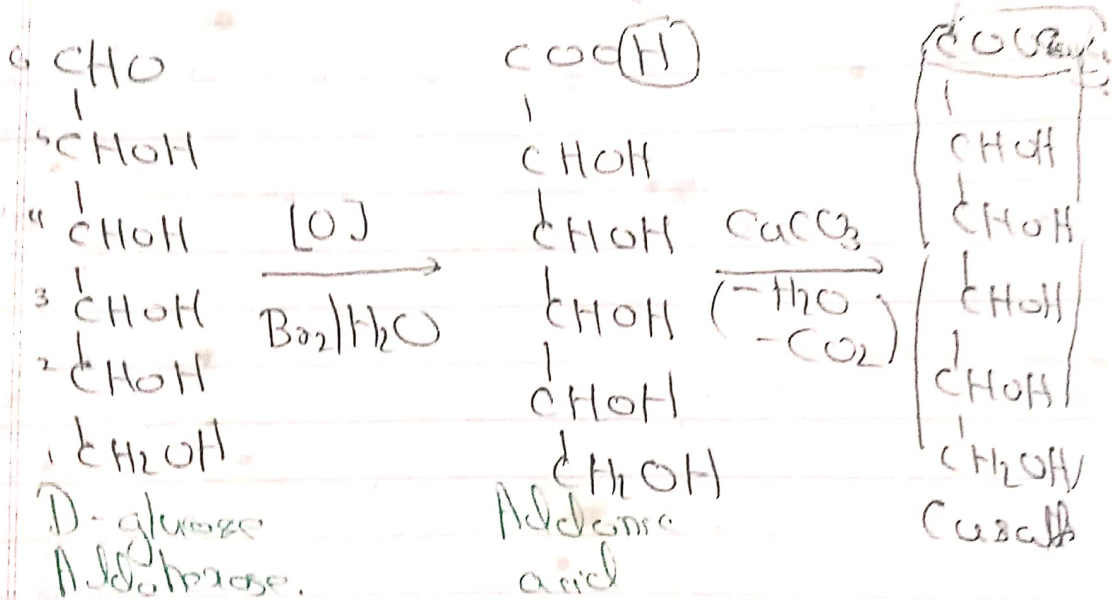 6 CHO
5 CHOH
4 CHOH
3 CHOH
2 CHOH
1 CH2OH
D-glucose
Aldohexose.
[O]
Br2/H2O
COOH
CHOH
CHOH
CHOH
CHOH
CH2OH
Aldonic
acid
CaCO3
(-H2O
-CO2)
CHOH
CHOH
CHOH
CHOH
CH2OH
Ca salt